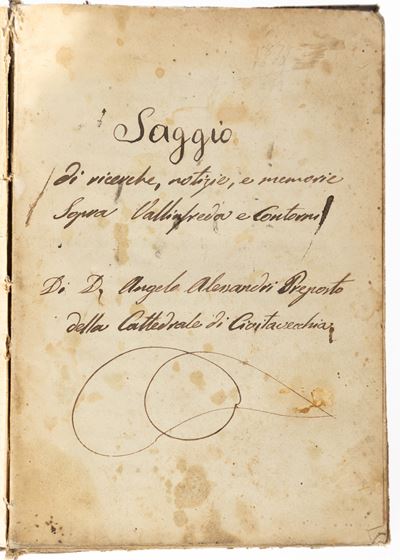 Saggio
di ricerche, notizie, e memorie
Sopra Vallinfreda e Contorni
Di D. Angelo Alessandri Preposto
della Cattedrale di Civitavecchia